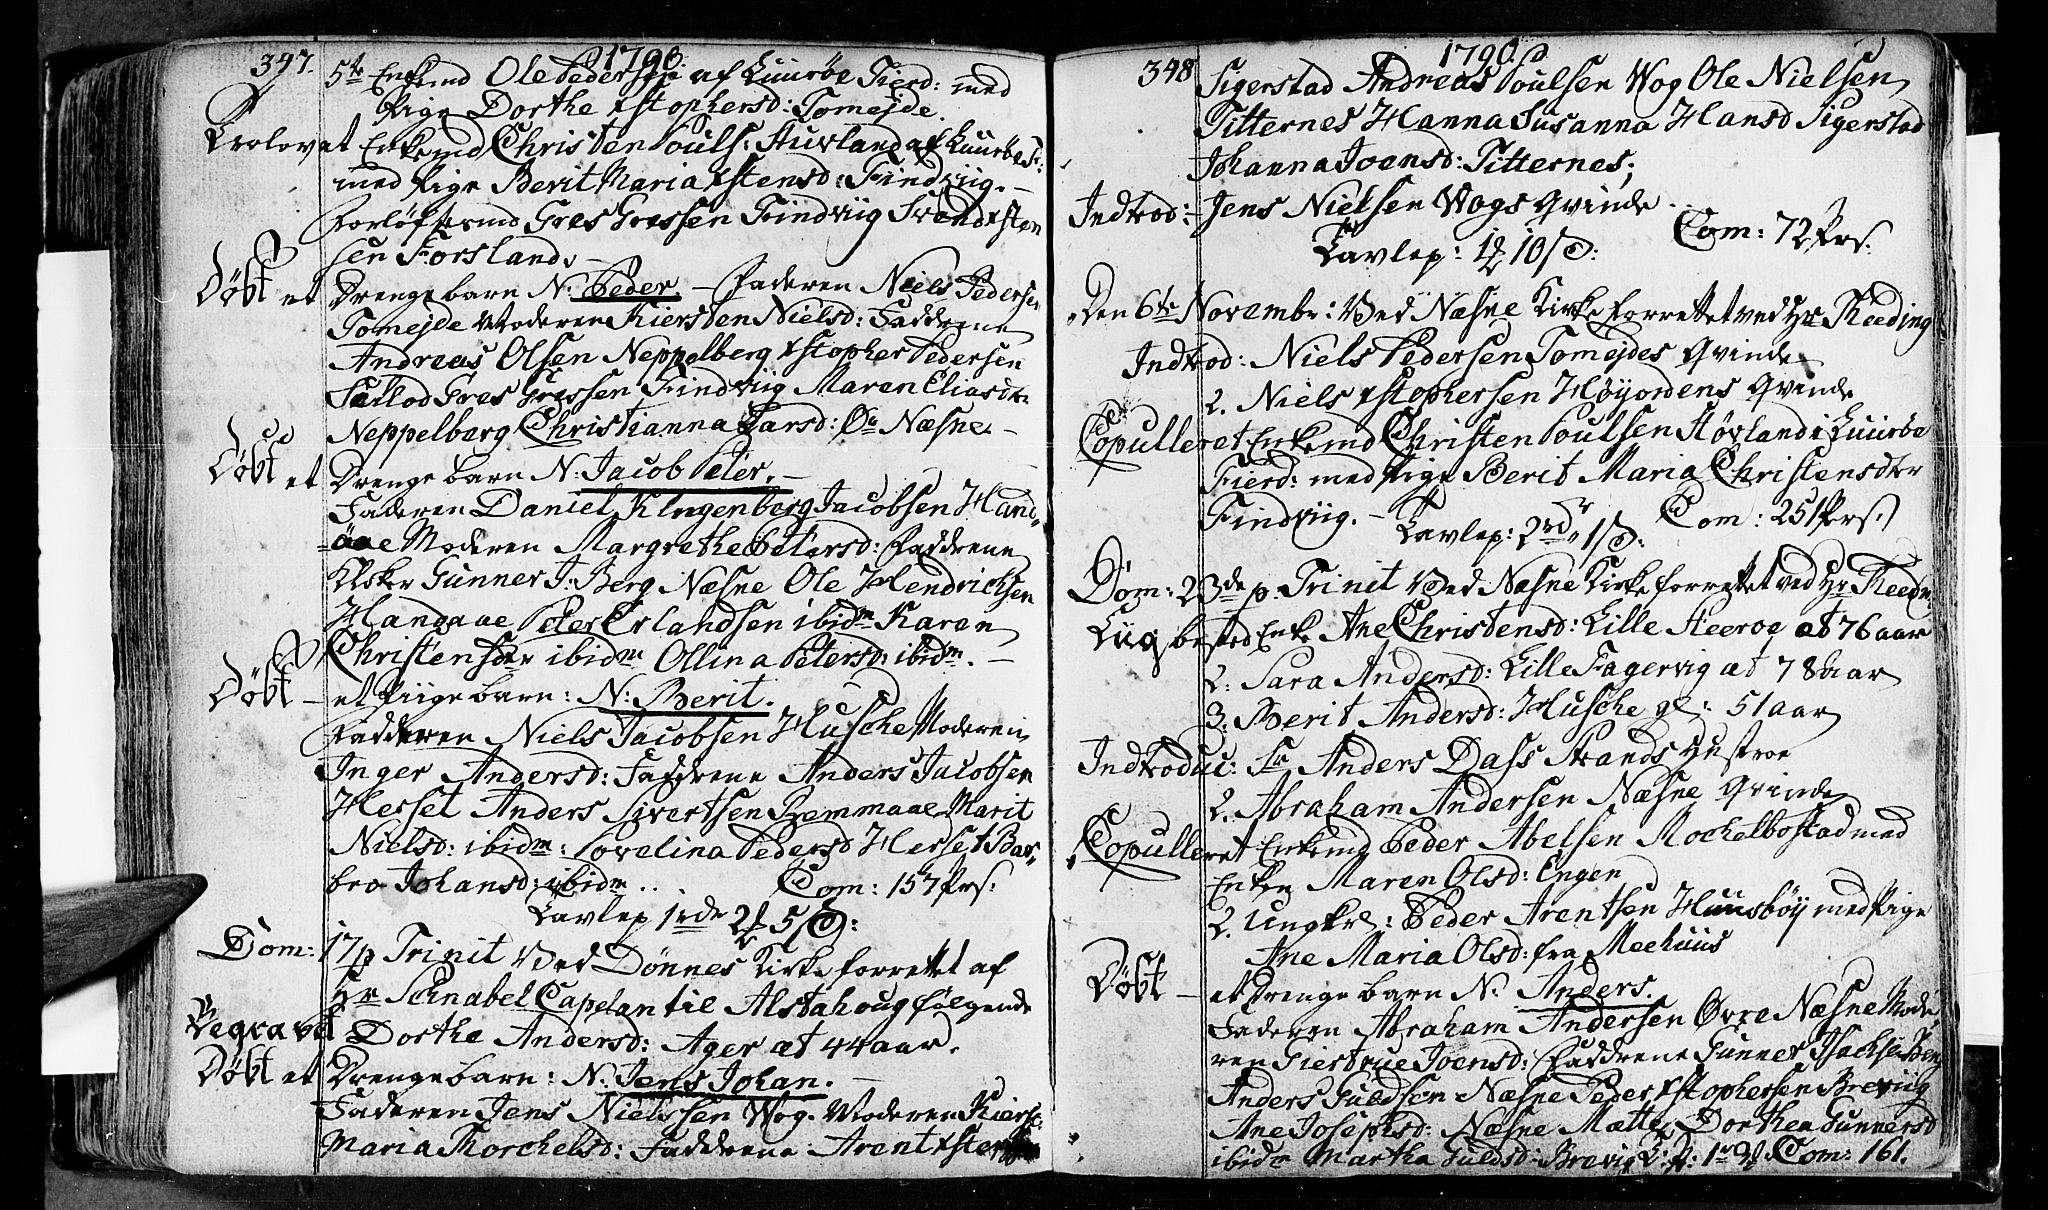 347. 1790.
5te Enkemd Ole Pedersen af Luurøe Fierd: med
Pige Dorthe Xstophersd: Tomejde.
Trolovet Enkemd Christen Pouls: Huvland af Luurøe F:
med Pige Berit Maria Xstensd: Findviig. —
Forløftesmd Gres Gressen Findviig Svend Xsten
sen Forsland.
Døbt et Drengebarn N: Peder. — Faderen Niels Pedersen
Tomejde Moderen Kiersten Nielsd: Faddrene
Andreas Olsen Neppelberg Xstopher Pedersen
Gres Gressen Findviig Maren Eliasdr
Neppelberg Christianna Larsd: Næsne. —
Døbt et Drengebarn N: Jacob Peter. —
Faderen Daniel Klngenberg Jacobsen Hand„
„aae Moderen Margrethe Petersd: Faddrene
Klsker Gunner J: Berg Næsne Ole Hendrichsen
Handaae Peter Erlandsen ibidm Karen
Christensdr ibidm Ollina Petersd: ibidm. —
Døbt — et Piigebarn: N: Berit.
Fadderen Niels Jacobsen Husche Moderen
Inger Andersd: Faddrene Anders Jacobsen
Herset Anders Sivertsen Remmaae Marit
Nielsd: ibidm: Povelina Pedersd Herset Bar„
bro Johansd: ibidm .. Com: 157 Prs:
Tavlep 1rde 2 5 s:
Dom: 17 p Trinit Ved Dønnes Kirke forrettet af
Hr Schnabel Capelan til Alstahoug følgende
Begravet Dorthe Andersd: Ager æt 44 aar.
Døbt et Drengebarn: N: Jens Johan. —
Faderen Jens Nielssen Wog. Moderen Kierst:
Maria Thorchelsd: Faddrene Arent Xsten
348 1790
Sigerstad Andreas Poulsen Wog Ole Nielsen
Titternes Hanna Susanna Hansd Sigerstad
Johanna Joensd: Titternes;
Indtrod: — Jens Nielsen Wogs Qvinde ..
Tavlep: 10 s: Com: 72 Prs.
Den 6te Novembr: Ved Næsne Kirke forrettet ved Hr Reeding
Indtrod: Niels Pedersen Tomejdes Qvinde
2. Niels Xstophersen Høyordens Qvinde
Copulleret Enkemd Christen Poulsen Høvland i Luurøe
Fierd: med Pige Berit Maria Christensdtr
Findviig. — Tavlep: 2rd 1 s: Com: 251 Prs.
Dom: 23de p. Trinit Ved Næsne Kirke forrettet ved Hr Reedn:
Liig bested Enke Ane Christensd: Lille æt 76 aar
2. Sara Andersd: Lille Fagervig æt 78 aar
3. Berit Andersd: Husche gl: 51 aar
Indtroduc: Sr Anders Dass Strands Hustroe
2. Abraham Andersen Næsne Qvinde
Copulleret Enkemd Peder Abelsen Mochelbostad med
Enken Maren Olsd: Engen
2. Ungkrl: Peder Arentsen Huusbøy med Pige
Ane Maria Olsd: fra Meehuus
Døbt — et Drengebarn N. Anders
Faderen Abraham Andersen Øvre Næsne Mode
ren Giertrue Joensd: Faddrene Gunner Isachse: Berg
Anders Guldsen Næsne Peder Xstophersen Breviig
Ane Josephsd: Næsne Mætte Dorthea Gunnersd
ibidm Martha Guldsd: Brevig T: p: 1 Com: 161.